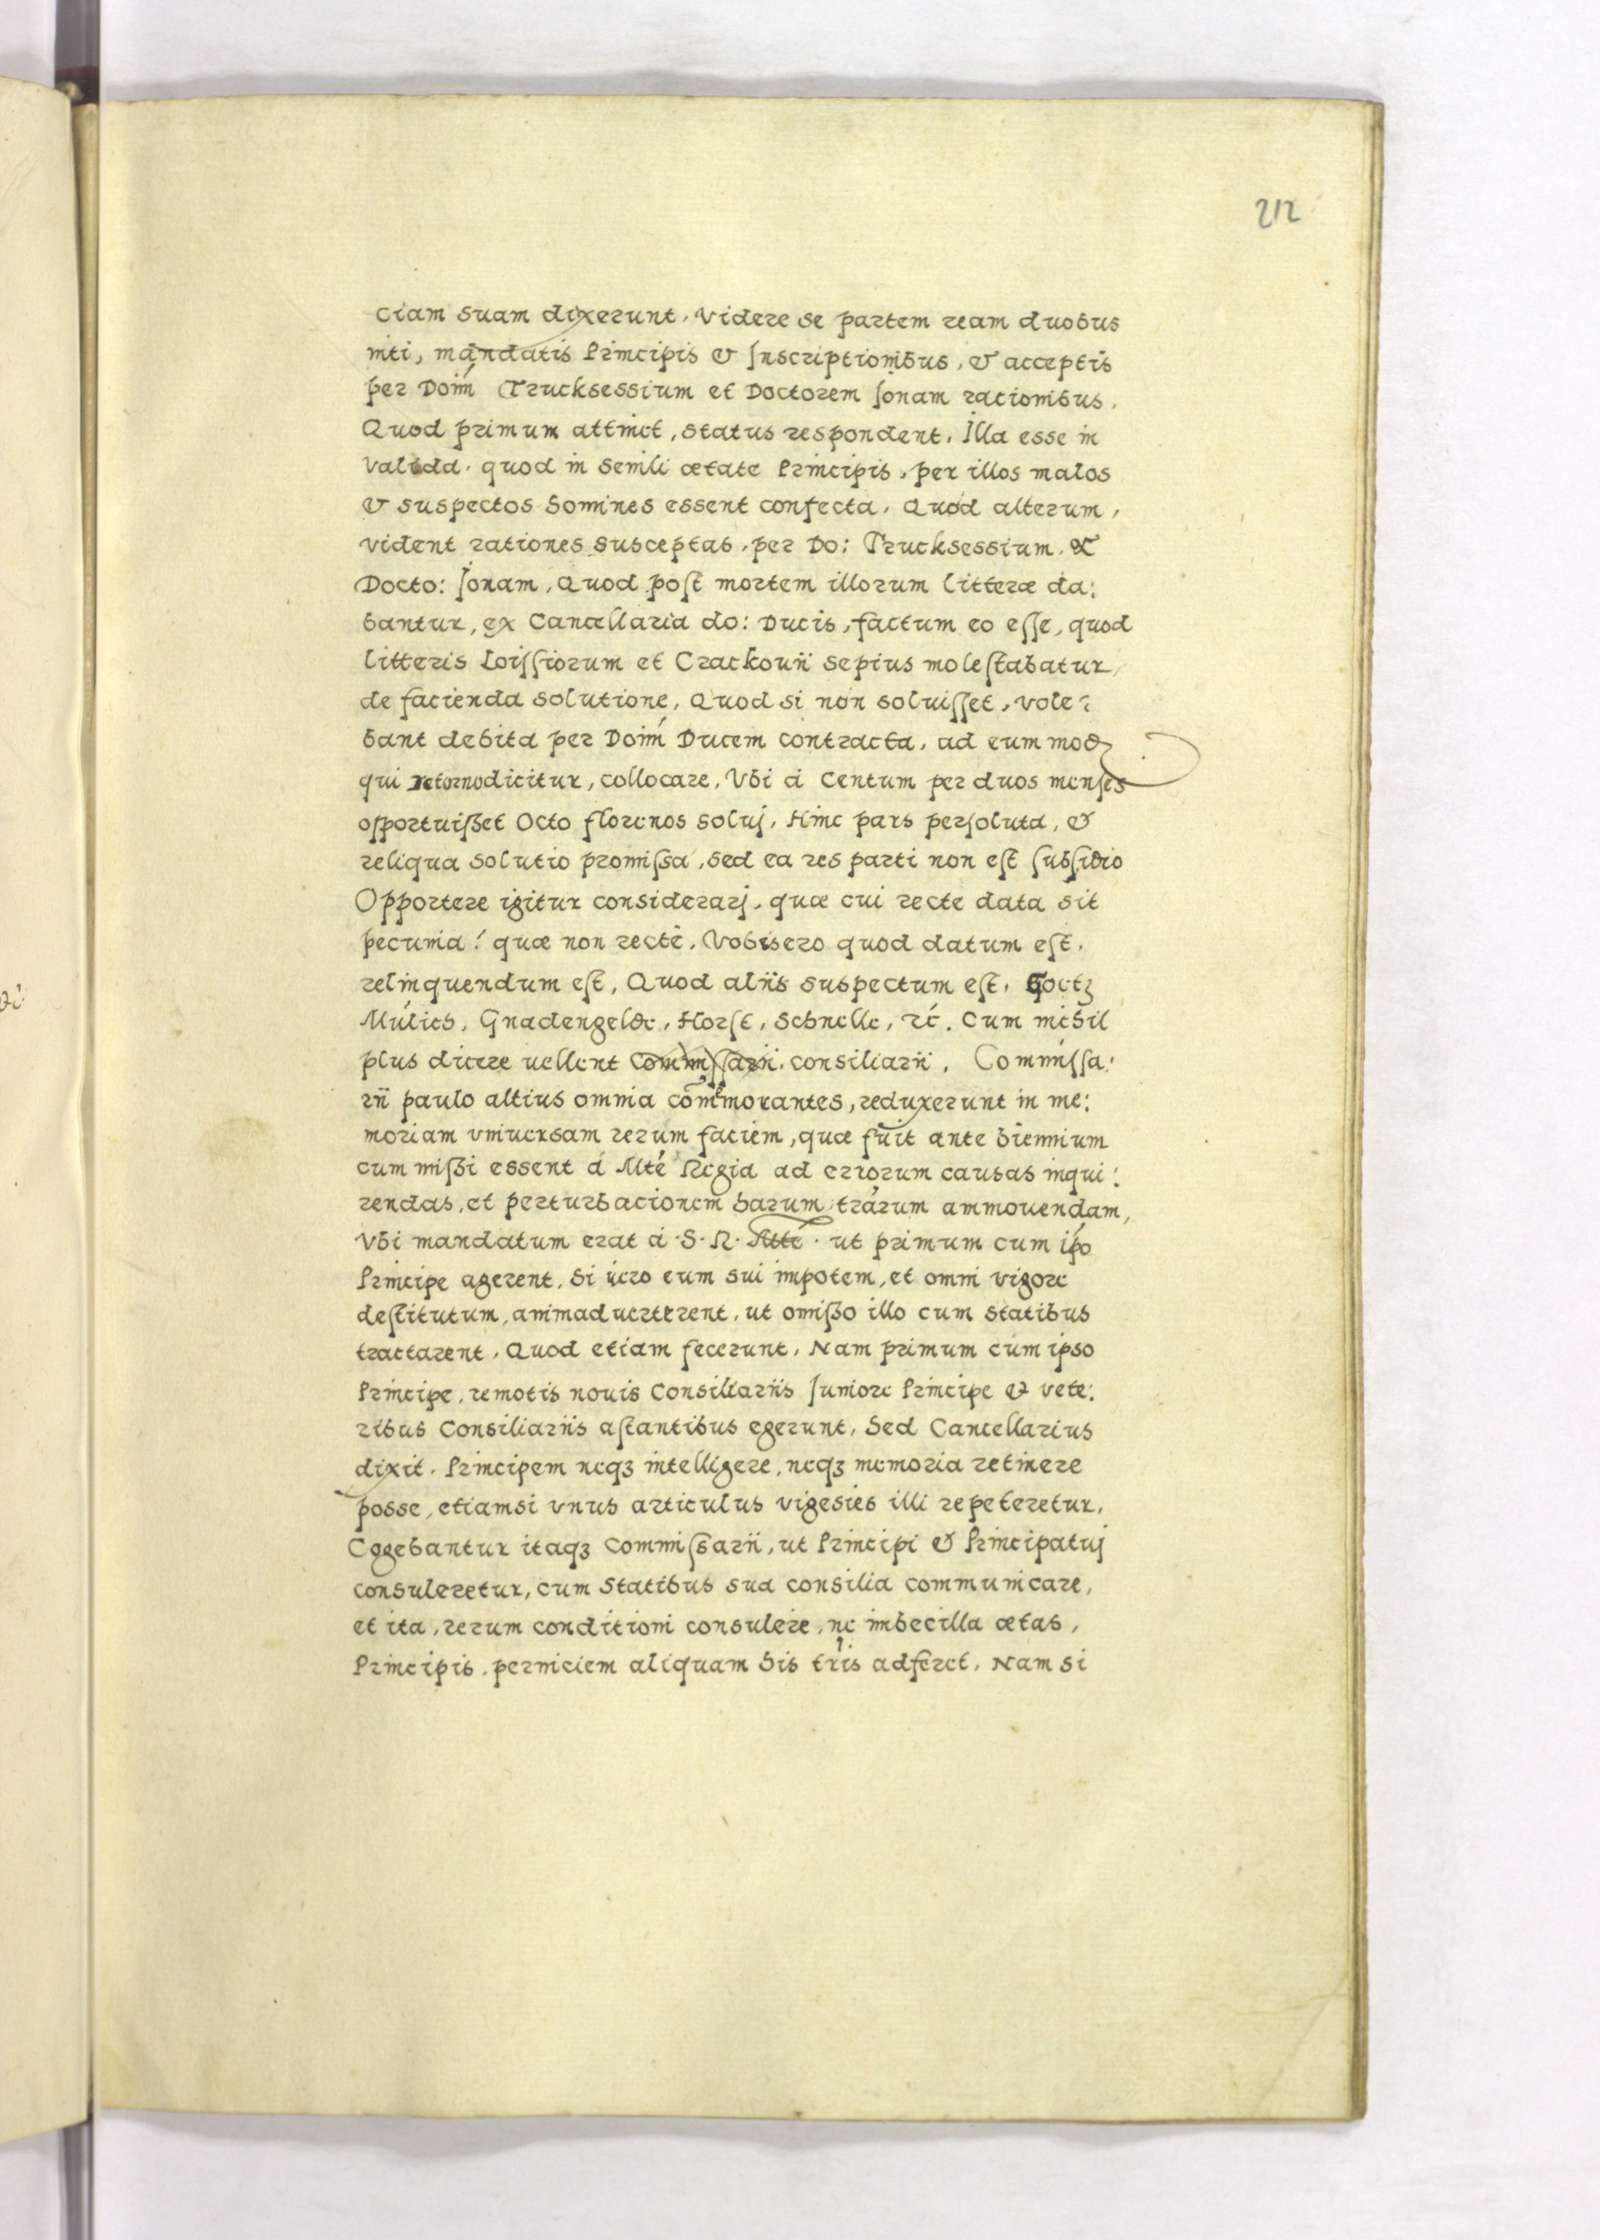 212
ciam suam dixerunt. Videre se partem ream duobus
niti, mandatis Principis & Inscriptionibus, & acceptis
per Doim Trucksessium et Doctorem Jonam rationibus.
Quod primum attinet, status respondent. Illa esse in
valida. quod in senili ætate Principis, per illos malos
& suspectos homines essent confecta. Quod alterum,
vident rationes susceptas, per Do: Trucksessium. &
Docto: Jonam, Quod post mortem illorum litteræ da:
bantur, ex Cancellaria do: Ducis, factum eo esse, quod
litteris Loissiorum et Crackovii sepius molestabatur,
de facienda solutione, Quod si non soluisset, vole:
bant debita per Doim Ducem contracta, ad eum mod
qui retorno dicitur, collocare, Vbi á Centum per duos menses
opportuisset Octo florenos soluj, Hinc pars persoluta, &
reliqua solutio promissa, sed ea res parti non est subsidio
Opportere igitur considerarj, quæ cui recte data sit
pecunia! quæ non rectè. Vobis ero quod datum est.
relinquendum est, Quod aliis suspectum est. Goctz
Múlich, Gnadengelde, Horst, Schnelle, rć. Cum nichil
plus dicere uellent Commissarii. consiliarii. Commissa:
rii paulo altius omnia commemorantes, reduxerunt in me:
moriam vniuersam rerum faciem, quæ fuit ante biennium
cum missi essent á Mte Regia ad errorum causas inqui:
rendas, et perturbacionem harum trarum ammouendam,
Vbi mandatum erat á S. R. Mtte. ut primum cum ipo
Principe agerent, Si uero eum sui impotem, et omni vigore
destitutum, animaduerterent, ut omisso illo cum statibus
tractarent. Quod etiam fecerunt. Nam primum cum ipso
Principe, remotis nouis Consiliariis Juniore Principe & vete:
ribus Consiliariis astantibus egerunt, Sed Cancellarius
dixit. Principem neqȝ intelligere, neqȝ memoria retinere
posse, etiamsi vnus articulus vigesies illi repeteretur.
Cogebantur itaqȝ Commissarii, ut Principi & Principatuj
consuleretur, cum Statibus sua consilia communicare,
et ita, rerum conditioni consulere, ne imbecilla ætas,
Principis, perniciem aliquam his tris adferet. Nam si